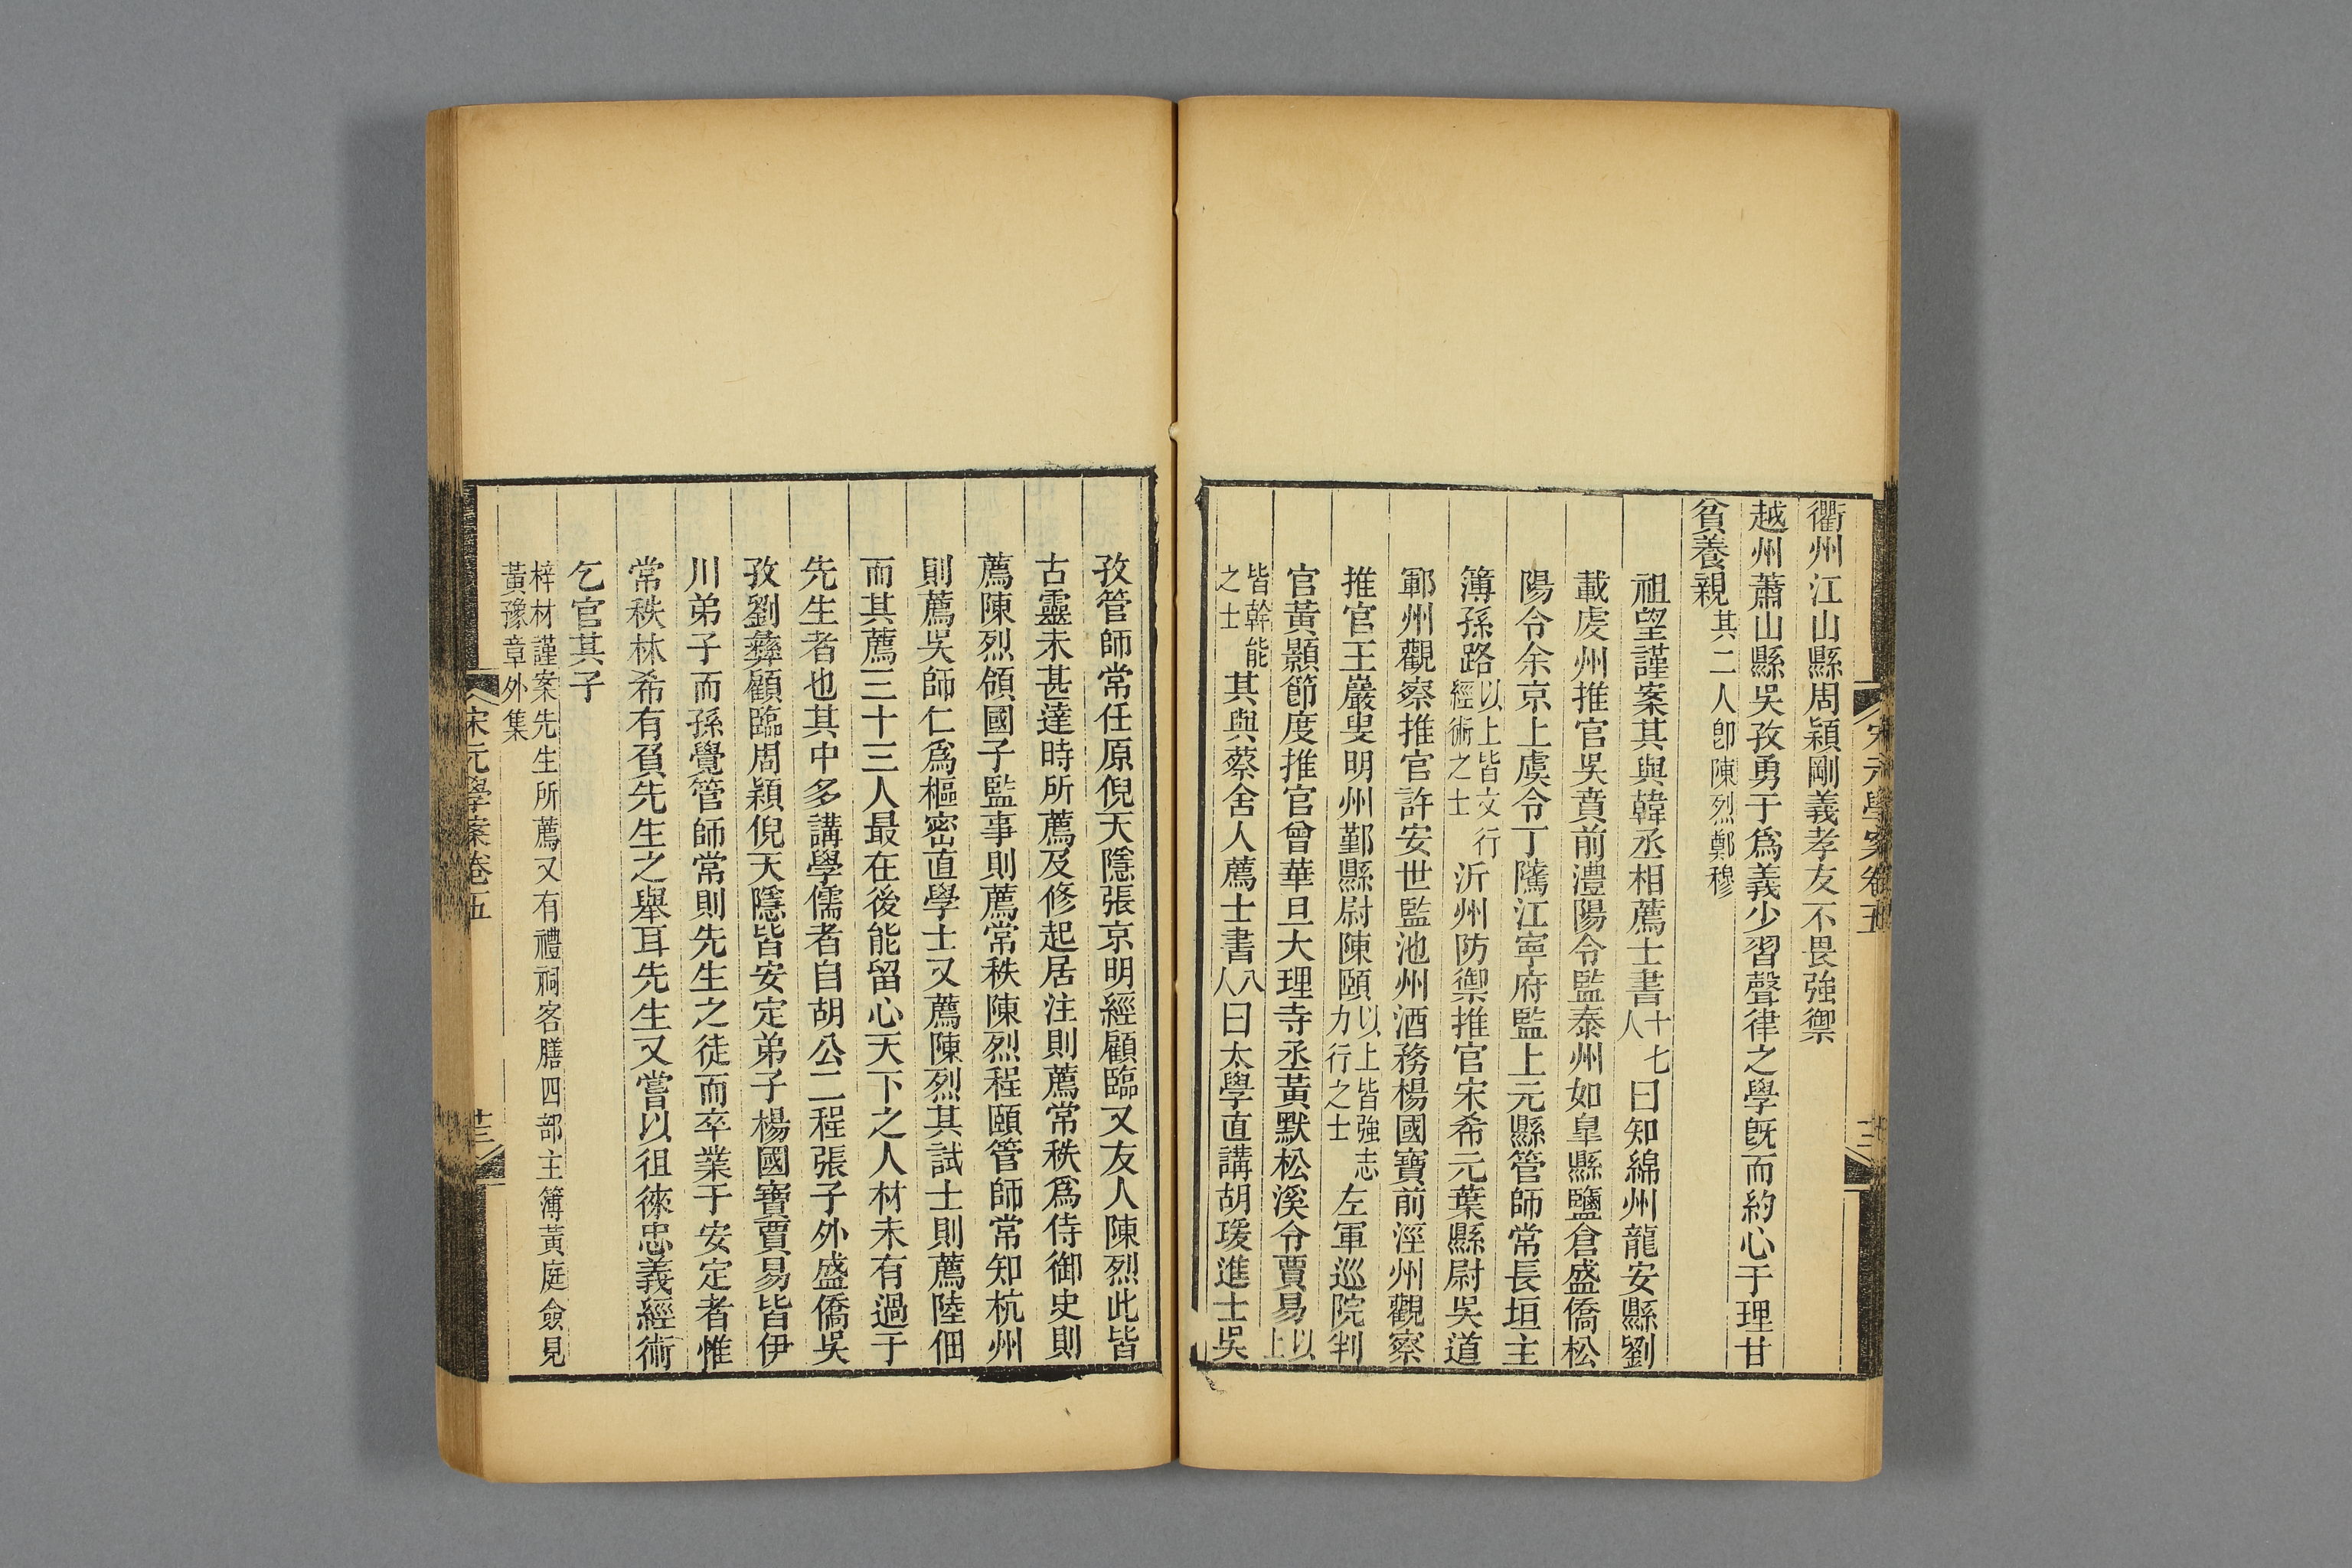 衢州江山縣周穎剛義孝友不畏強禦
越州蕭山縣吳孜勇于爲義少習聲律之學旣而約心于理甘
貧養親其二人卽陳烈鄭穆
祖望謹案其與韓丞相薦士書十七人曰知綿州龍安縣劉
載虔州推官吳賁前澧陽令監泰州如臯縣鹽倉盛僑松
陽令余京上虞令丁隲江寧府監上元縣管師常長垣主
簿孫路以上皆文行經術之士沂州防禦推官宋希元葉縣尉吳道
鄆州觀察推官許安世監池州酒務楊國寶前涇州觀察
推官王巖叟明州鄞縣尉陳頤以上皆強志力行之士左軍巡院判
官黃顥節度推官曾華旦大理寺丞黃默松溪令賈易以上
皆幹能之士其與蔡舍人薦士書八人曰太學直講胡瑗進士吳
宋元學案卷五
孜管師常任原倪天隱張京明經顧臨又友人陳烈此皆
古靈未甚達時所薦及修起居注則薦常秩爲侍御史則
薦陳烈領國子監事則薦常秩陳烈程頤管師常知杭州
則薦吳師仁爲樞密直學士又薦陳烈其試士則薦陸佃
而其薦三十三人最在後能留心天下之人材未有過于
先生者也其中多講學儒者自胡公二程張子外盛僑吳
孜劉彝顧臨周穎倪天隱皆安定弟子楊國寶賈易皆伊
川弟子而孫覺管師常則先生之徒而卒業于安定者惟
常秩林希有負先生之舉耳先生又嘗以徂徠忠義經術
乞官其子
梓材謹案先生所薦又有禮祠客膳四部主簿黃庭僉見
黃豫章外集
宋元學案卷五